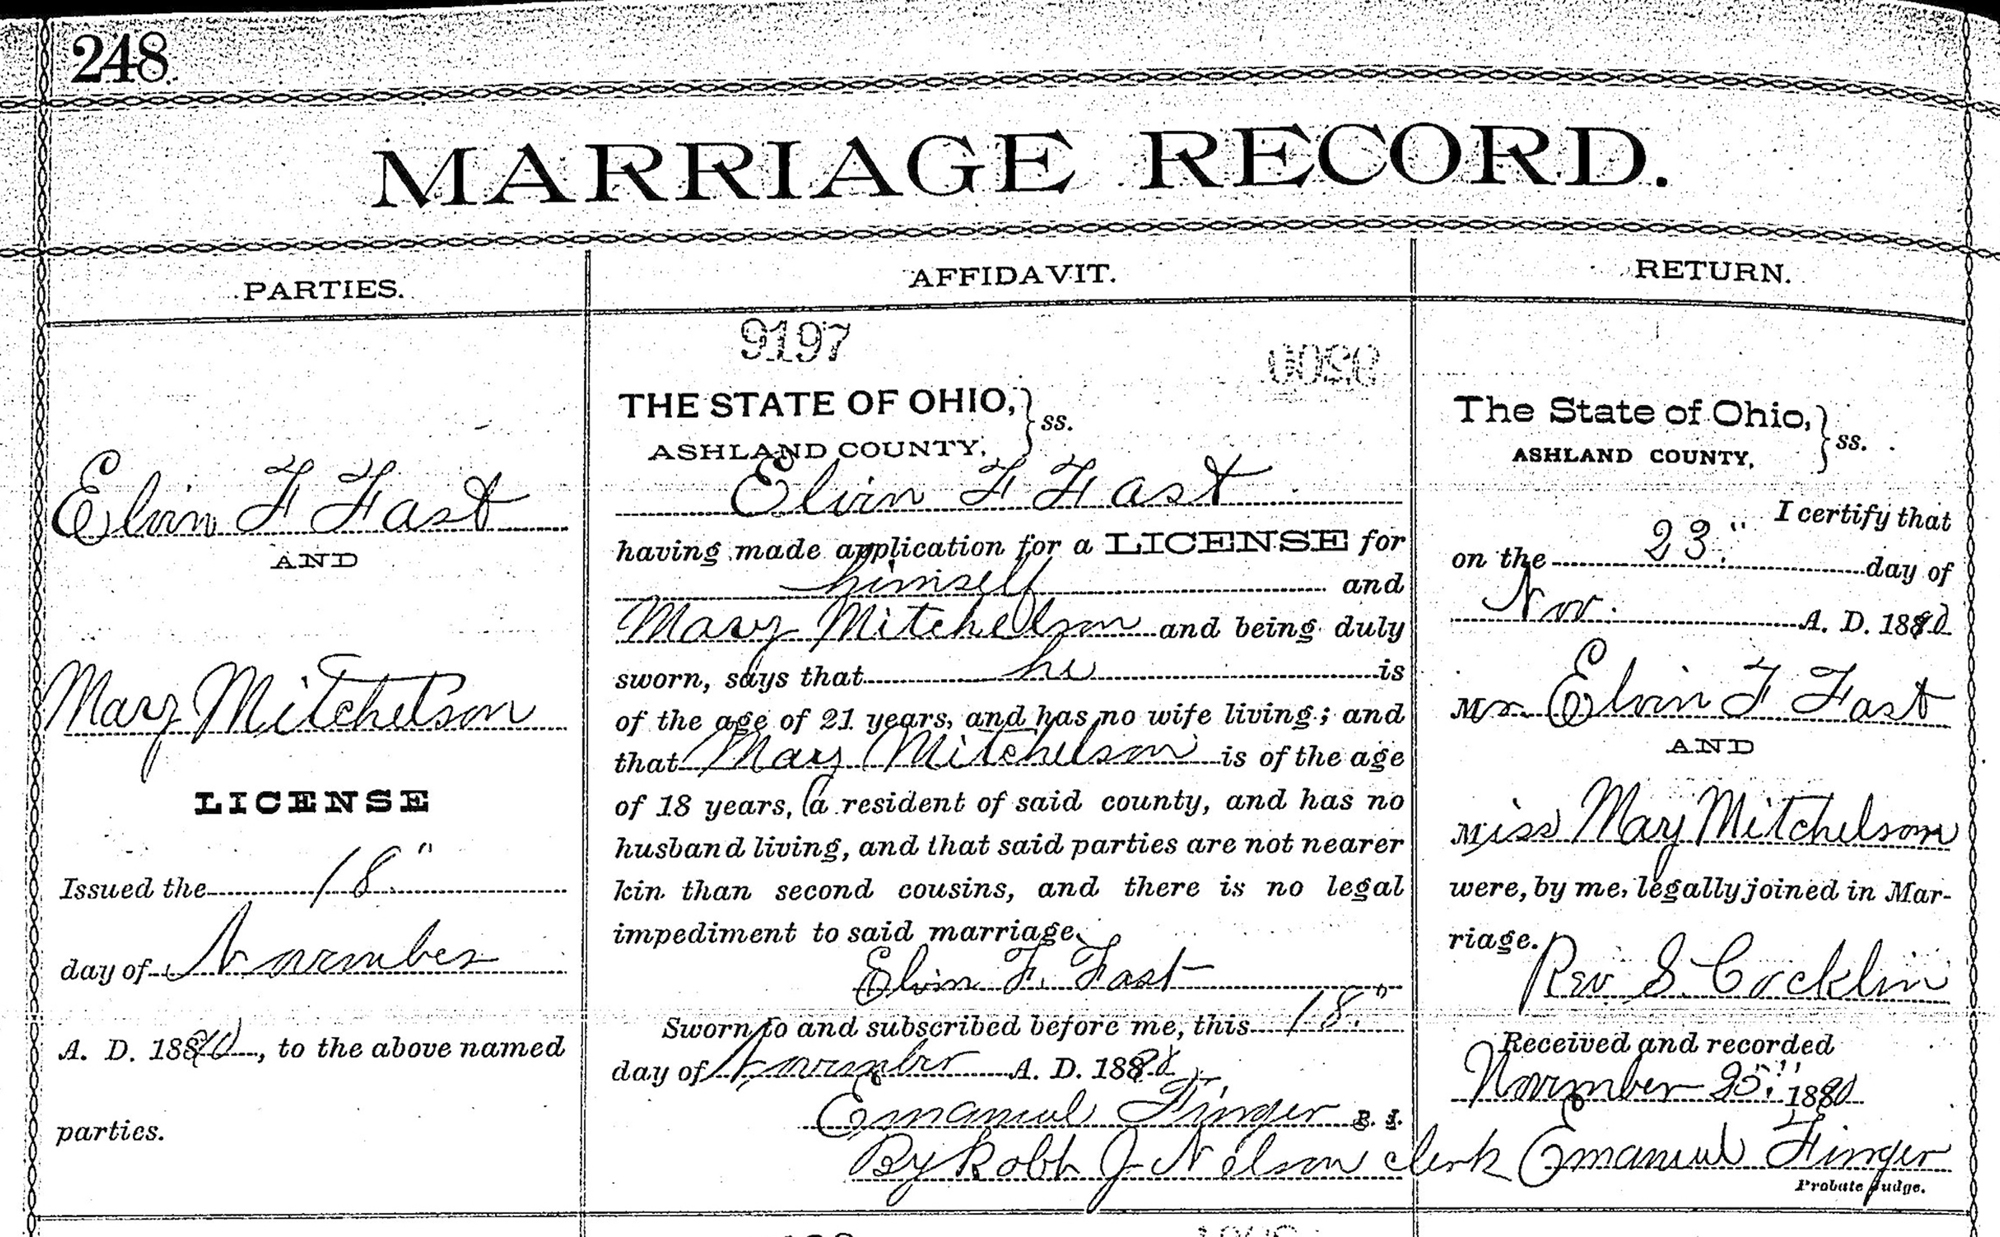 248
MARRIAGE RECORD.
PARTIES.
Elvin F Fast
AND
Mary Mitchelson
LICENSE
Issued the 18"
day of November
A. D. 1890, to the above named
parties.
AFFIDAVIT.
9197
THE STATE OF OHIO, } ss.
ASHLAND COUNTY,
Elvin F Fast
having made application for a LICENSE for
himself and
Mary Mitchelson and being duly
sworn, says that he is
of the age of 21 years, and has no wife living; and
that Mary Mitchelson is of the age
of 18 years, a resident of said county, and has no
husband living, and that said parties are not nearer
kin than second cousins, and there is no legal
impediment to said marriage.
Elvin F. Fast
Sworn to and subscribed before me, this 18"
day of November A. D. 1890
Emanuel Finger P. J.
By Robt J Nelson clerk
RETURN.
The State of Ohio, } ss.
ASHLAND COUNTY,
I certify that
on the 23" day of
Nov. A. D. 1890
Mr. Elvin F Fast
AND
Miss Mary Mitchelson
were, by me, legally joined in Mar-
riage.
Rev S. Cocklin
Received and recorded
November 25" 1890
Emanuel Finger
Probate Judge.